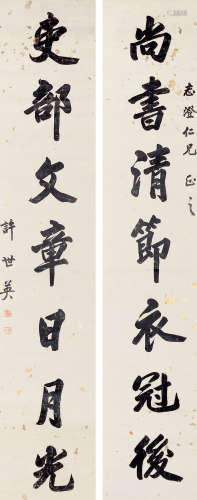 尚書清節衣冠後
志澄仁兄 正之
吏部文章日月光
許世英